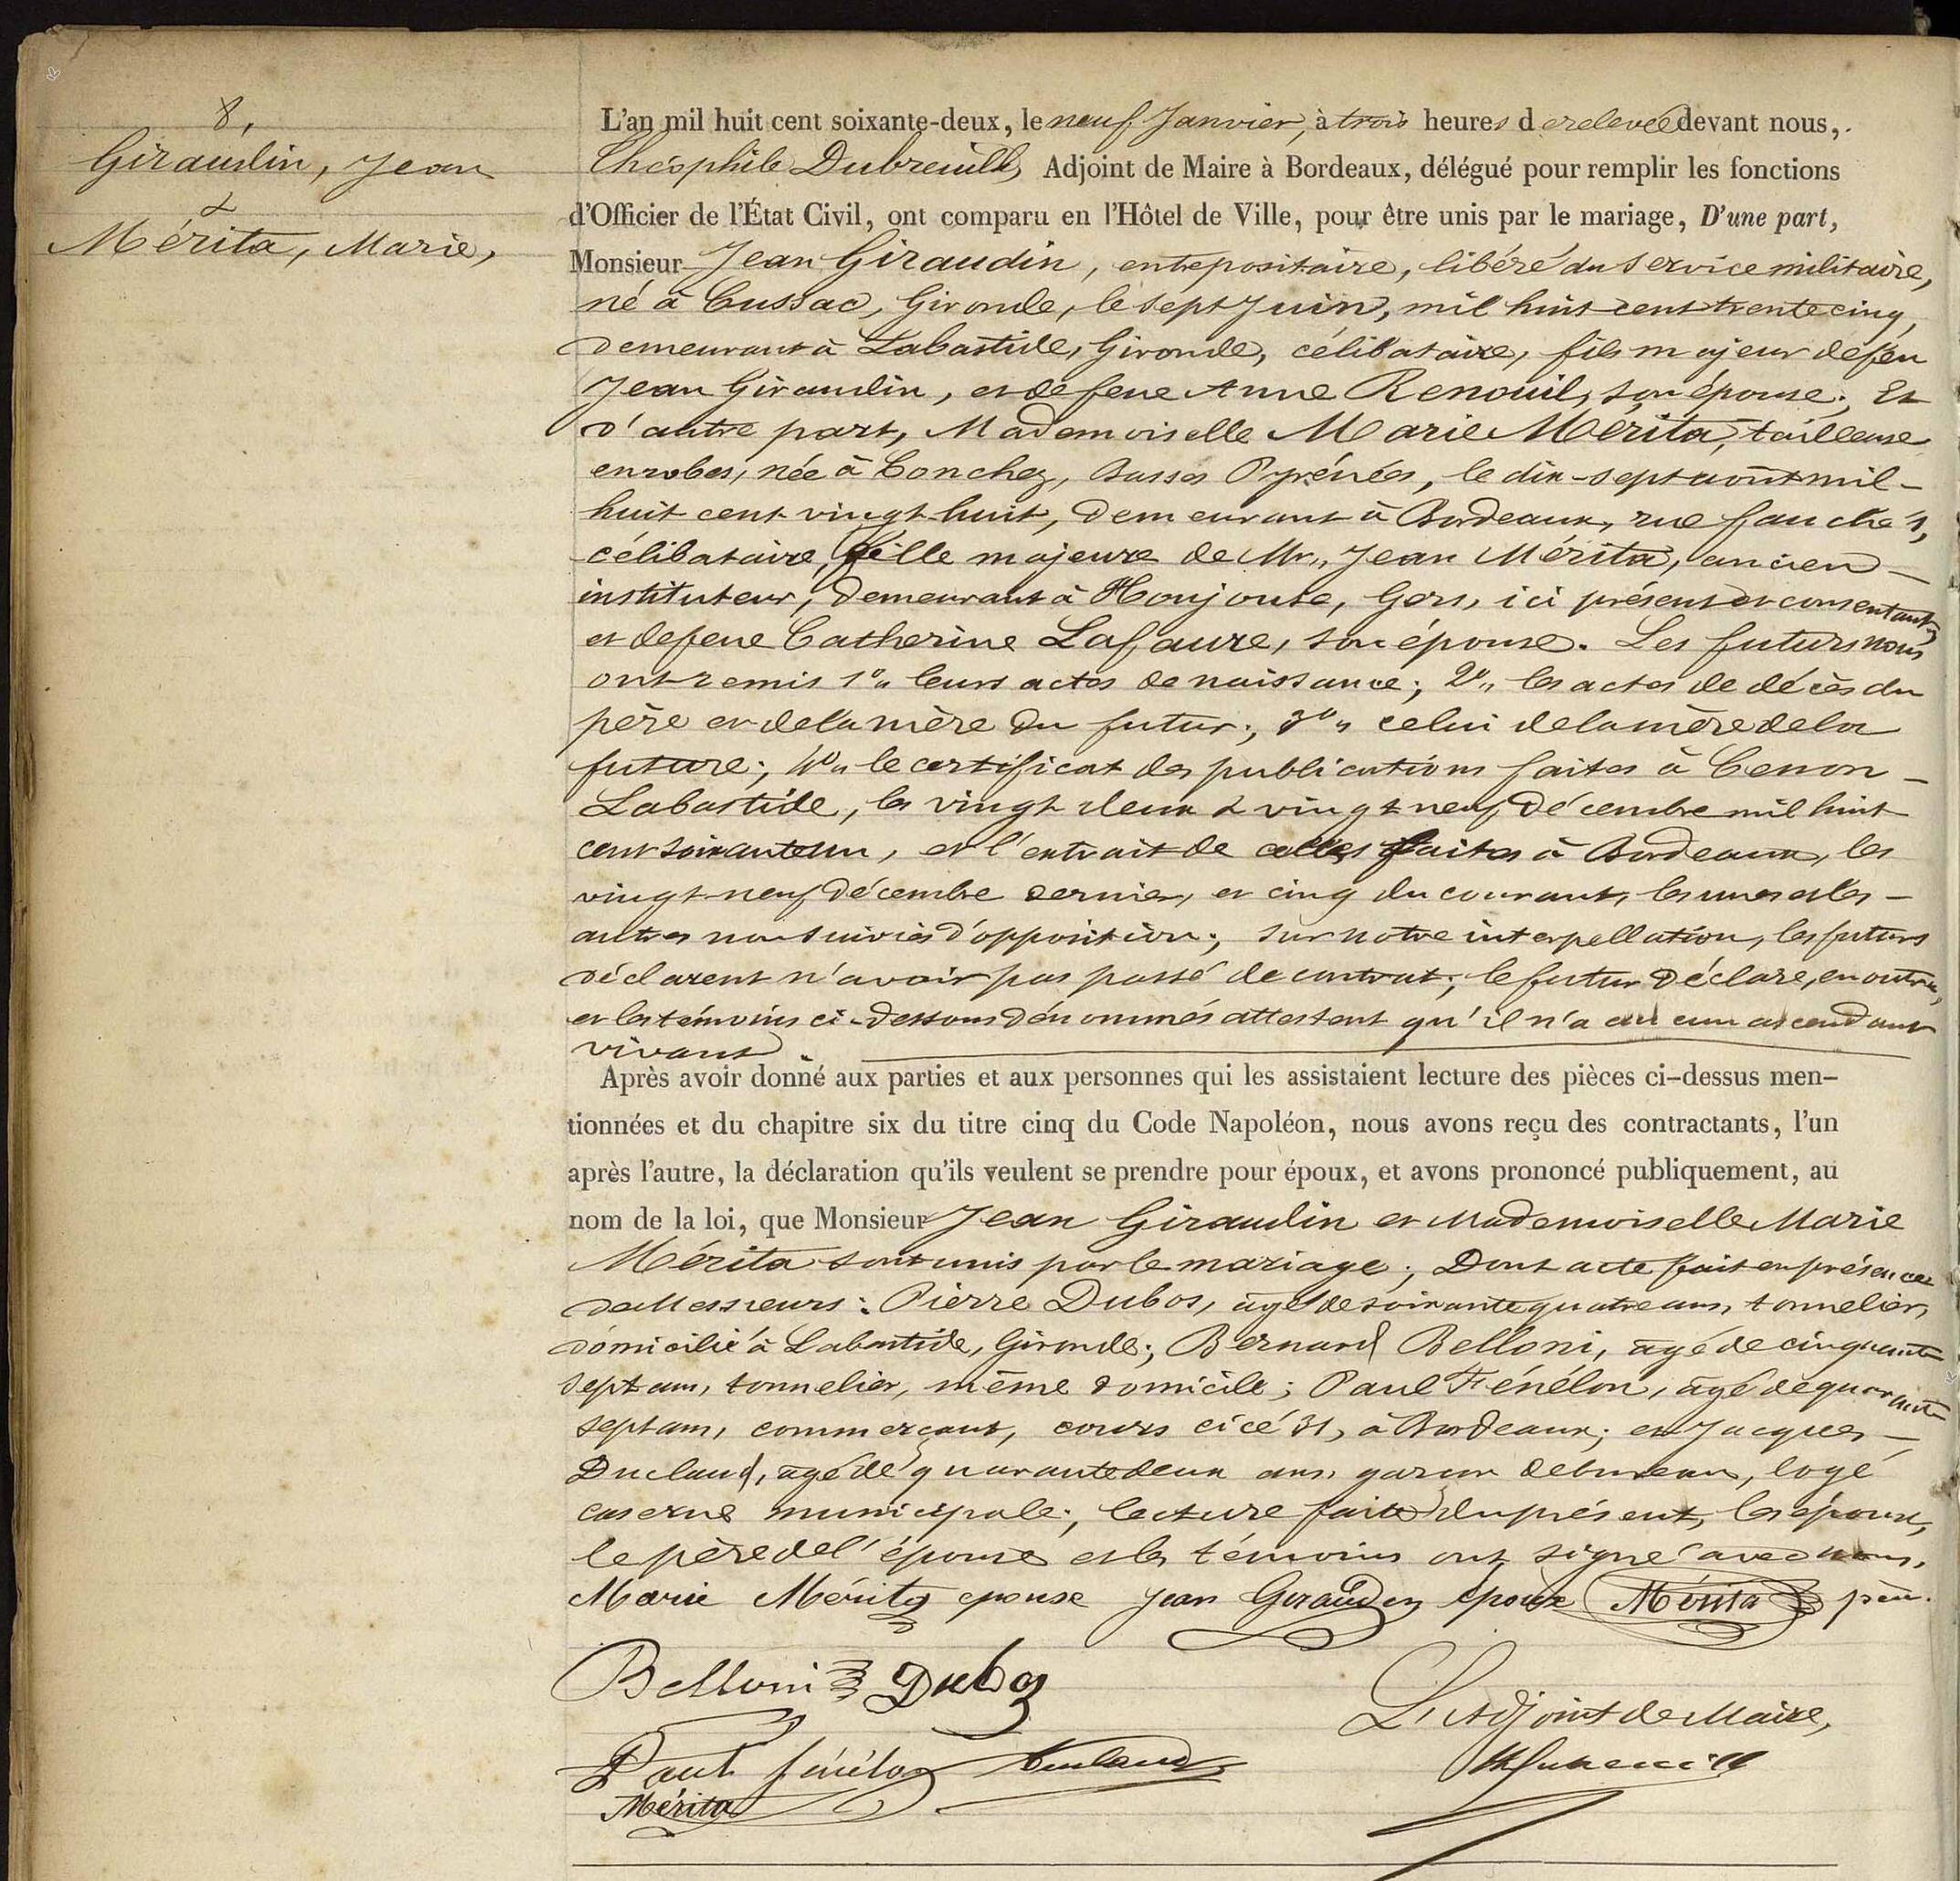 8.
Giraudin, Jean
&
Mérita, Marie,
L'an mil huit cent soixante-deux, le neuf Janvier, à trois heures de relevée devant nous,
Théophile Dubreuilh, Adjoint de Maire à Bordeaux, délégué pour remplir les fonctions
d'Officier de l'État Civil, ont comparu en l'Hôtel de Ville, pour être unis par le mariage, D'une part,
Monsieur Jean Giraudin, entrepositaire, libéré du service militaire,
né à Cussac, Gironde, le sept Juin, mil huit cent trente cinq,
demeurant à Labastide, Gironde, célibataire, fils majeur de feu
Jean Giraudin, et de feue Anne Renouil, son épouse; Et
d'autre part, Mademoiselle Marie Mérita, tailleuse
en robes, née à Conchez, Basses Pyrénées, le dix-sept août mil-
huit cent vingt huit, demeurant à Bordeaux, rue fauché 1,
célibataire, fille majeure de Mr. Jean Mérita, ancien
instituteur, demeurant à Gers, ici présent et consentant,
et de feue Catherine Lafaure, son épouse. Les futurs nous
ont remis 1º leurs actes de naissance; 2º les actes de décès du
père et de la mère du futur; 3º celui de la mère de la
future; 4º le certificat des publications faites à Cenon-
Labastide, les vingt deux & vingt neuf décembre mil huit
cent soixante un, et l'extrait de celles faites à Bordeaux, les
vingt-neuf décembre dernier, et cinq du courant, les unes et les-
autres non suivies d'opposition; sur notre interpellation, les futurs
déclarent n'avoir pas passé de contrat; le futur déclare, en outre,
et les témoins ci-dessous dénommés attestent qu'il n'a aucun ascendant
vivant.
Après avoir donné aux parties et aux personnes qui les assistaient lecture des pièces ci-dessus men-
tionnées et du chapitre six du titre cinq du Code Napoléon, nous avons reçu des contractants, l'un
après l'autre, la déclaration qu'ils veulent se prendre pour époux, et avons prononcé publiquement, au
nom de la loi, que Monsieur Jean Giraudin et Mademoiselle Marie
Mérita sont unis par le mariage; Dont acte fait en présence
de Messieurs: Pierre Dubos, âgé de soixante quatre ans, tonnelier,
domicilié à Labastide, Gironde; Bernard Belloni, âgé de cinquante
sept ans, tonnelier, même domicile; Paul Fénélon, âgé de quarante
sept ans, commerçant, cours cicé 31, à Bordeaux; et Jacques
Duclaud, âgé de quarante deux ans, garçon de bureau, logé
caserne municipale; lecture faite du présent, les époux,
le père de l'épouse et les témoins ont signé avec nous.
Marie Mérita epouse Jean Giraudin époux Mérita père.
Belloni Dubos
L'Adjoint de Maire,
Paul fénélon Duclaud
Mérita